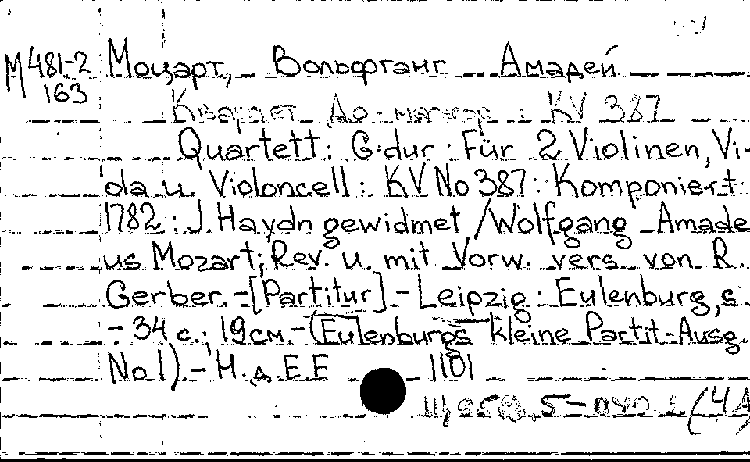 M481-2 Моцарт, Вольфганг Амадей
163
Квартет До мажор : KV 387
Quartett : G-dur : Für 2 Violinen, Vi-
ola u. Violoncell : KV No 387 : Komponiert
1782 : J. Haydn gewidmet / Wolfgang Amade
us Mozart; Rev. u. mit Vorw. vers. von R.
Gerber. - [Partitur]. - Leipzig : Eulenburg, s.
- 34 с.; 19см. - (Eulenburgs kleine Partit-Ausg.
No 1) - Н. д. E E 1101